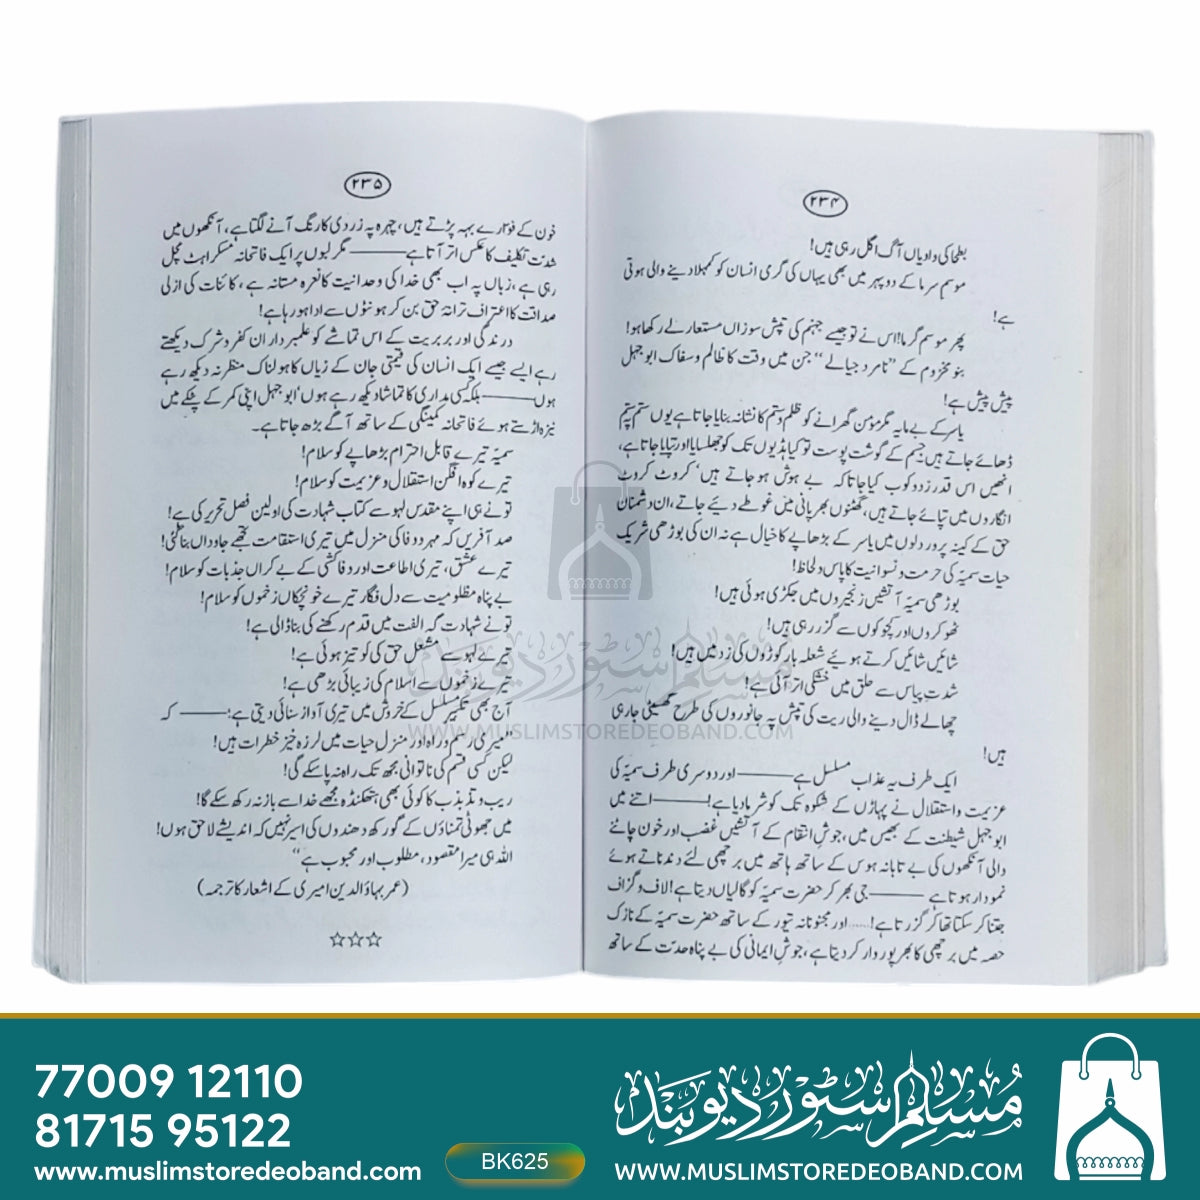 ۲۳۴
بطحا کی وادیاں آگ اگل رہی ہیں!
موسم سرما کے دوپہر میں بھی یہاں کی گرمی انسان کو کمہلا دینے والی ہوتی
ہے!
پھر موسم گرما! اس نے تو جیسے جہنم کی تپش سوزاں مستعار لے رکھا ہو!
بنو مخزوم کے "نامرد جیالے" جن میں وقت کا ظالم وسفاک ابوجہل
پیش پیش ہے!
یاسر کے بے مایہ مگر مؤمن گھرانے کو ظلم وستم کا نشانہ بنایا جاتا ہے یوں ستم پہ ستم
ڈھائے جاتے ہیں جسم کے گوشت پوست تو کیا ہڈیوں تک کو جھلسایا اور تپایا جاتا ہے،
انھیں اس قدر زدوکوب کیا جاتا کہ بے ہوش ہو جاتے ہیں' کروٹ کروٹ
انگاروں میں تپائے جاتے ہیں، گھنٹوں بھر پانی میں غوطے دیئے جاتے، ان دشمنان
حق کے کینہ پرور دلوں میں یاسر کے بڑھاپے کا خیال ہے نہ ان کی بوڑھی شریک
حیات سمیہؓ کی حرمت و نسوانیت کا پاس ولحاظ!
بوڑھی سمیہؓ آتشیں زنجیروں میں جکڑی ہوئی ہیں!
ٹھوکروں اور کچوکوں سے گزر رہی ہیں!
شائیں شائیں کرتے ہوئے شعلہ بار کوڑوں کی زد میں ہیں!
شدت پیاس سے حلق میں خشکی اتر آئی ہے!
چھالے ڈال دینے والی ریت کی تپش پہ جانوروں کی طرح گھسیٹی جارہی
ہیں!
ایک طرف یہ عذاب مسلسل ہے ——— اور دوسری طرف سمیہؓ کی
عزیمت و استقلال نے پہاڑوں کے شکوہ تک کو شرما دیا ہے! ——— اتنے میں
ابوجہل شیطنت کے بھیس میں، جوشِ انتقام کے آتشیں غضب اور خون چاٹنے
والی آنکھوں کی بے تابانہ ہوس کے ساتھ ہاتھ میں برچھی لئے دندناتے ہوئے
نمودار ہوتا ہے ——— جی بھر کر حضرت سمیہؓ کو گالیاں دیتا ہے! لاف و گزاف
جتنا کر سکتا تھا کر گزرتا ہے! ...... اور مجنونانہ تیور کے ساتھ حضرت سمیہؓ کے نازک
حصہ میں برچھی کا بھرپور وار کر دیتا ہے، جوشِ ایمانی کی بے پناہ حدت کے ساتھ
۲۳۵
خون کے فوارے بہہ پڑتے ہیں، چہرہ پہ زردی کا رنگ آنے لگتا ہے، آنکھوں میں
شدت تکلیف کا عکس اتر آتا ہے ——— مگر لبوں پر ایک فاتحانہ مسکراہٹ مچل
رہی ہے، زباں پہ اب بھی خدا کی وحدانیت کا نعرہ مستانہ ہے، کائنات کی ازلی
صداقت کا اعتراف ترانۂ حق بن کر ہونٹوں سے ادا ہو رہا ہے!
درندگی اور بربریت کے اس تماشے کو علمبرداران کفر و شرک دیکھتے
رہے ایسے جیسے ایک انسان کی قیمتی جان کے زیاں کا ہولناک منظر نہ دیکھ رہے
ہوں ——— بلکہ کسی مداری کا تماشا دیکھ رہے ہوں' ابوجہل اپنی کمر کے پٹکے میں
نیزہ اڑستے ہوئے فاتحانہ کمینگی کے ساتھ آگے بڑھ جاتا ہے۔
سمیہؓ تیرے قابل احترام بڑھاپے کو سلام!
تیرے کوہ افگن استقلال و عزیمت کو سلام!
تو نے ہی اپنے مقدس لہو سے کتاب شہادت کی اولین فصل تحریر کی ہے!
صد آفریں کہ مہر و وفا کی منزل میں تیری استقامت تجھے جاوداں بنا گئی!
تیرے عشق، تیری اطاعت اور وفا کشی کے بے کراں جذبات کو سلام!
بے پناہ مظلومیت سے دل فگار تیرے خونچکاں زخموں کو سلام!
تو نے شہادت گہ الفت میں قدم رکھنے کی بنا ڈالی ہے!
تیرے لہو سے مشعل حق کی لو تیز ہوئی ہے!
تیرے زخموں سے اسلام کی زیبائی بڑھی ہے!
آج بھی تکبیر مسلسل کے خروش میں تیری آواز سنائی دیتی ہے: ——— کہ
"میری رسم و راہ اور منزل حیات میں لرزہ خیز خطرات ہیں!
لیکن کسی قسم کی ناتوانی مجھ تک راہ نہ پا سکے گی!
ریب و تذبذب کا کوئی بھی ہتھکنڈہ مجھے خدا سے باز نہ رکھ سکے گا!
میں جھوٹی تمناؤں کے گورکھ دھندوں کی اسیر نہیں کہ اندیشے لاحق ہوں!
اللہ ہی میرا مقصود، مطلوب اور محبوب ہے"
(عمر بہاؤالدین امیری کے اشعار کا ترجمہ)
☆☆☆
مسلم سٹور دیوبند
WWW.MUSLIMSTOREDEOBAND.COM
77009 12110
81715 95122
www.muslimstoredeoband.com
BK625
مسلم سٹور دیوبند
WWW.MUSLIMSTOREDEOBAND.COM